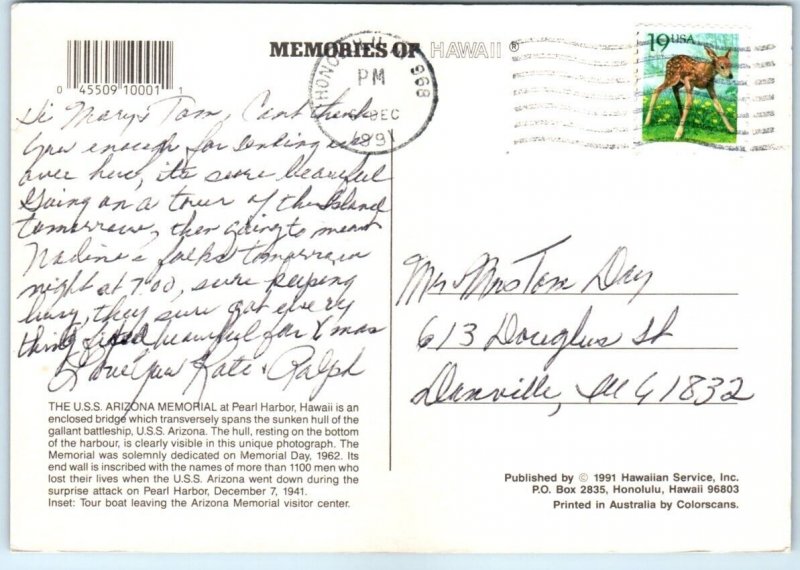 MEMORIES OF HAWAII ®
19 USA
HONOLULU HI 968
PM
DEC
1991
0 45509 10001 1
Hi Mary & Tom, Cant thank
you enough for sending us
over here, its sure beautiful
Going on a tour of the Island
tomorrow, then going to meet
Nadine's folks tomorrow
night at 7:00, sure keeping
busy, they sure got every
thing beautiful for Xmas
Love you Kate & Ralph
Mr Mrs Tom Day
613 Douglas St
Danville, Ill 61832
THE U.S.S. ARIZONA MEMORIAL at Pearl Harbor, Hawaii is an
enclosed bridge which transversely spans the sunken hull of the
gallant battleship, U.S.S. Arizona. The hull, resting on the bottom
of the harbour, is clearly visible in this unique photograph. The
Memorial was solemnly dedicated on Memorial Day, 1962. Its
end wall is inscribed with the names of more than 1100 men who
lost their lives when the U.S.S. Arizona went down during the
surprise attack on Pearl Harbor, December 7, 1941.
Inset: Tour boat leaving the Arizona Memorial visitor center.
Published by © 1991 Hawaiian Service, Inc.
P.O. Box 2835, Honolulu, Hawaii 96803
Printed in Australia by Colorscans.